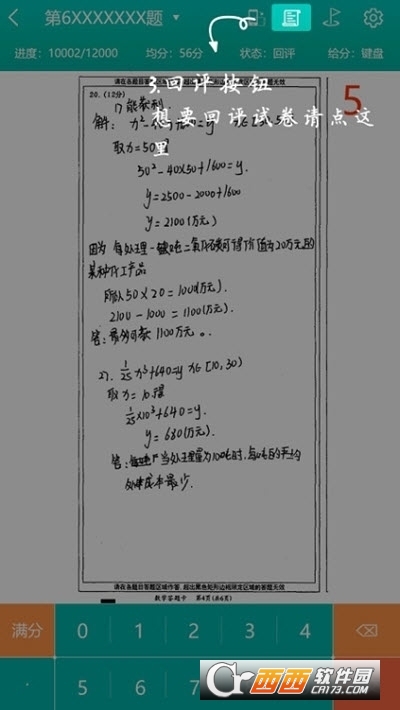 第6XXXXXXX题
进度：10002/12000 均分：56分 状态：回评 给分：键盘
请在各题目答题区域内作答，超出黑色矩形边框限定区域的答案无效
5
3.回评按钮
想要回评试卷请点这里
20.（12分）
1) 能获利.
解：
取x=50
50²-40×50+1600=y.
y=2500-2000+1600
y=2100(万元)
因为 每处理一吨二氧化碳可得价值为20万元的
某种化工产品
所以 50×20=1000(万元).
2100-1000=1100(万元)
答：最多可获1100万元。
2). 1/25 x³+640=y x∈[10,30)
取x=10
1/25×10³+640=y.
y=680(万元).
答：当处理量为10吨时，每吨的平均
处理成本最少.
请在各题目答题区域内作答，超出黑色矩形边框限定区域的答案无效
数学答题卡 第4页(共6页)
满分 0 1 2 3 4
. 5 6 7
西西软件园
CR173.COM